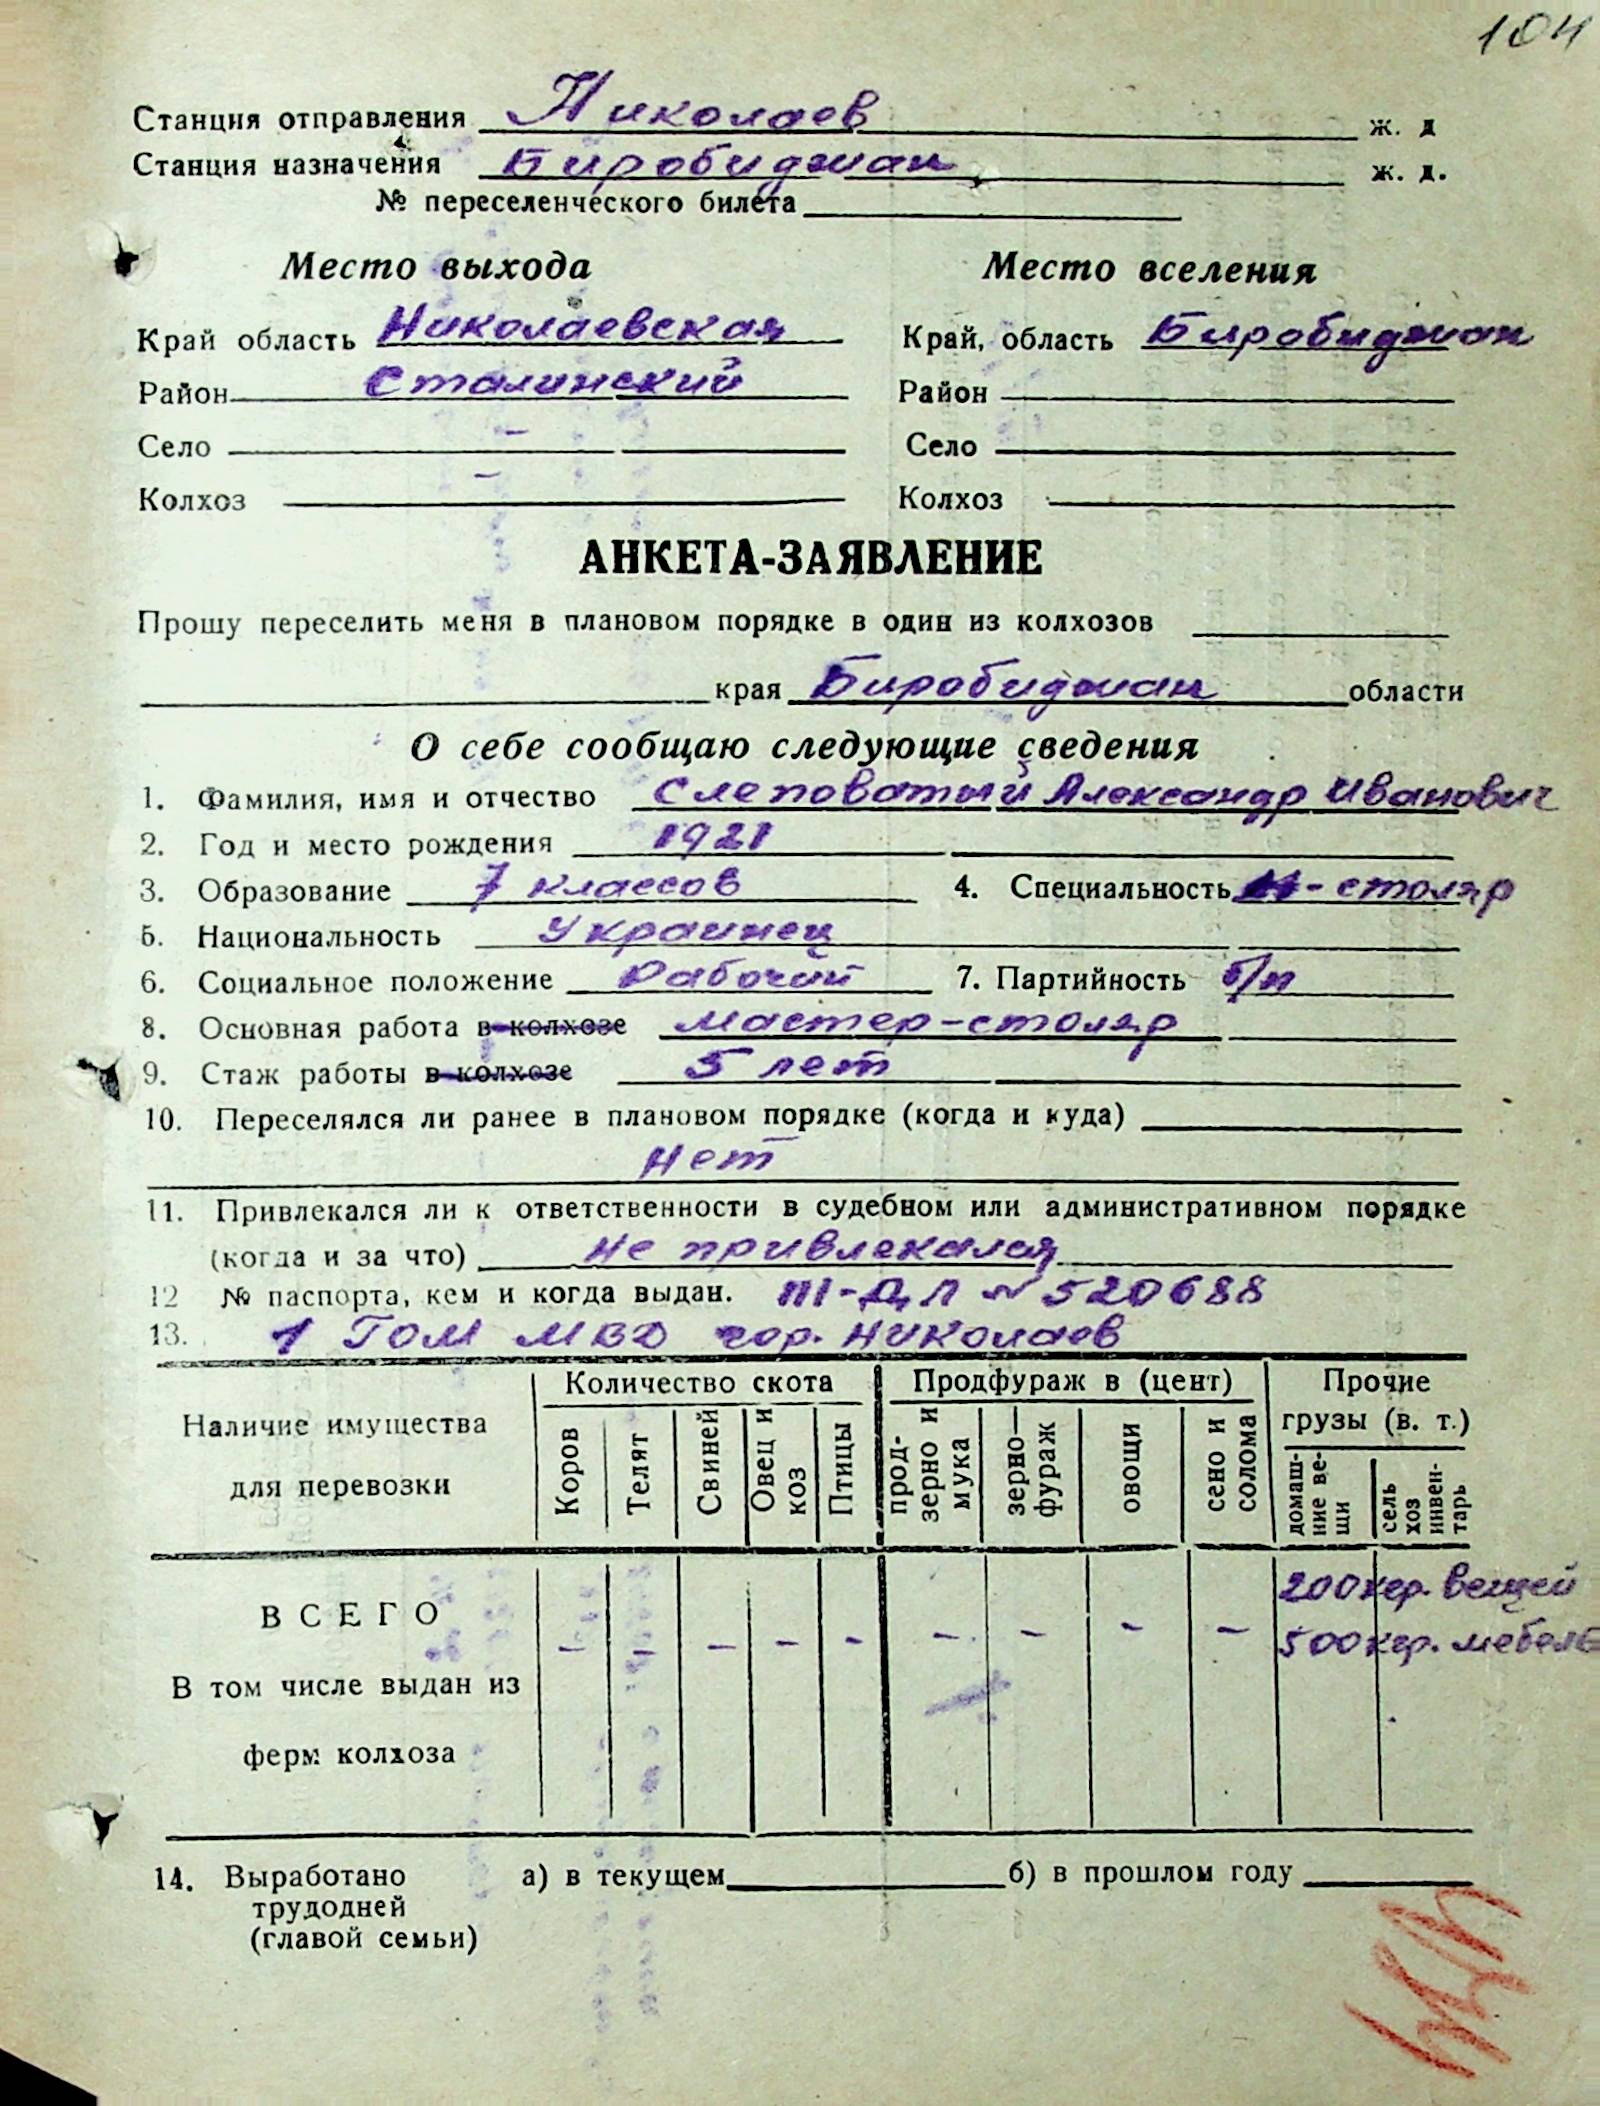 104
Станция отправления Николаев ж. д
Станция назначения Биробиджан ж. д.
№ переселенческого билета
Место выхода Место вселения
Край область Николаевская Край, область Биробиджан
Район Сталинский Район
Село - Село
Колхоз - Колхоз
АНКЕТА-ЗАЯВЛЕНИЕ
Прошу переселить меня в плановом порядке в один из колхозов
края Биробиджан области
О себе сообщаю следующие сведения
1. Фамилия, имя и отчество Слеповатый Александр Иванович
2. Год и место рождения 1921
3. Образование 7 классов 4. Специальность - столяр
5. Национальность Украинец
6. Социальное положение Рабочий 7. Партийность б/п
8. Основная работа в колхозе мастер-столяр
9. Стаж работы в колхозе 5 лет
10. Переселялся ли ранее в плановом порядке (когда и куда)
Нет
11. Привлекался ли к ответственности в судебном или административном порядке
(когда и за что) не привлекался
12 № паспорта, кем и когда выдан. III-ДЛ № 520688
13. 1 ГОМ МВД гор. Николаев
Наличие имущества для перевозки
Количество скота Продфураж в (цент) Прочие грузы (в. т.)
Коров Телят Свиней Овец и коз Птицы прод-зерно и мука зерно-фураж овощи сено и солома домаш-ние ве-щи сель хоз инвен-тарь
ВСЕГО - - - - - - - - - 200 кгр. вещей
500 кгр. мебель
В том числе выдан из
ферм колхоза
14. Выработано а) в текущем б) в прошлом году
трудодней
(главой семьи)